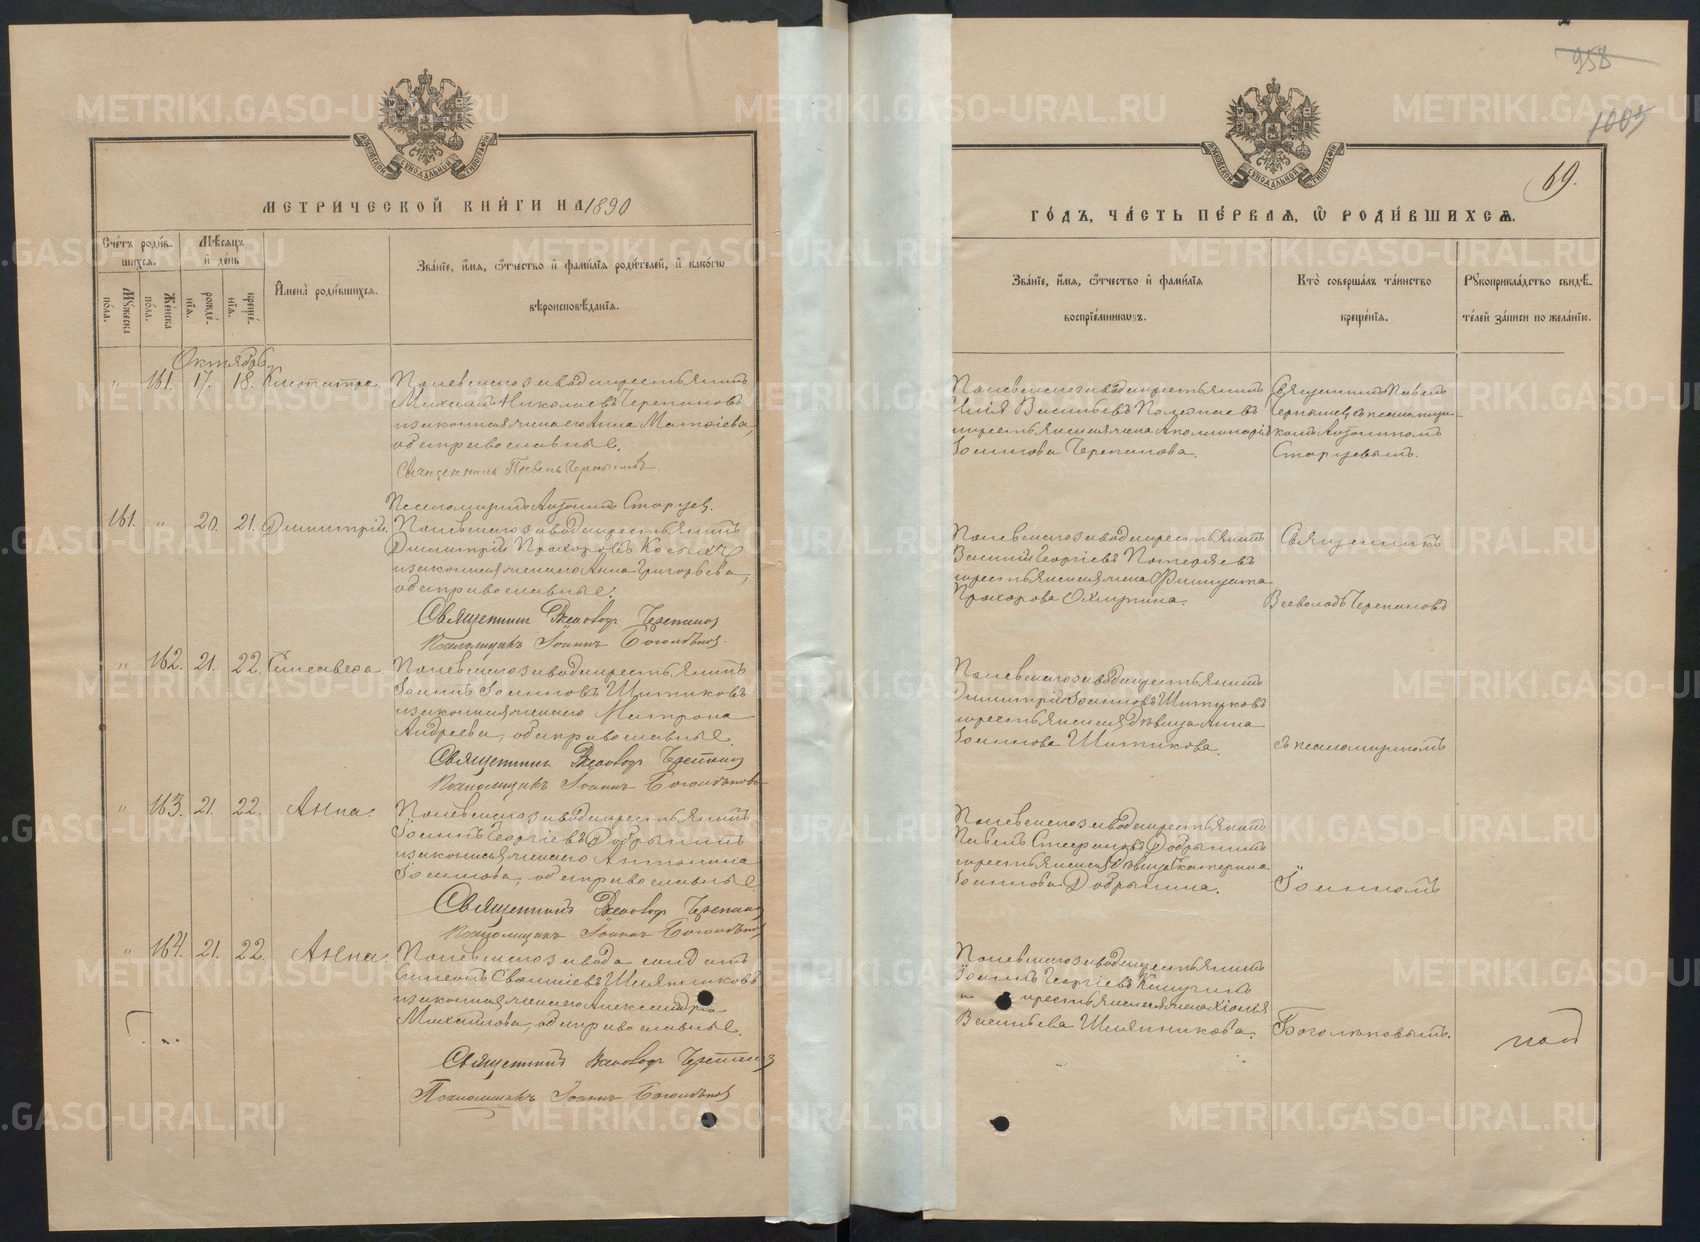 958
1003
69.
МЕТРИЧЕСКОЙ КНИГИ НА 1890
ГОДЪ, ЧАСТЬ ПЕРВАЯ, Ѡ РОДИВШИХСЯ.
Счетъ родив-
шихся.
Мужеска
пола.
Женска
пола.
Мѣсяцъ
и день
рожде-
нія.
креще-
нія.
Имена родившихся.
Званіе, имя, ѻтчество и фамилія родителей, и какогѡ
вѣроисповѣданія.
Званіе, имя, ѻтчество и фамилія
воспріемниковъ.
Кто совершалъ таинство
крещенія.
Рукоприкладство свидѣ-
телей записи по желанію.
Октябрь.
" 161. 17. 18. Клеопатра.
Полевскаго завода крестьянинъ
Михаилъ Николаевъ Черепановъ
и законная жена его Анна Матѳіева,
оба православные.
Священникъ Павелъ
Псаломщикъ Старцев.
Полевскаго завода крестьянинъ
Илія Васильевъ
крестьянская жена Аполлинарія
Іоаннова Черепанова.
Священникъ Павелъ
съ псаломщи-
комъ
Старцевымъ.
161. " 20. 21. Димитрій.
Полевскаго завода крестьянинъ
Димитрій Прохоровъ Косыхъ
и законная жена его Анна Григорьева,
оба православные.
Священникъ Всеволодъ Черепановъ
Псаломщикъ Іоаннъ Боголѣповъ.
Полевскаго завода крестьянинъ
Василій Георгіевъ Потеряевъ
крестьянская жена
Прохорова
Священникъ
Всеволодъ Черепановъ
" 162. 21. 22. Елисавета.
Полевскаго завода крестьянинъ
Іоаннъ Іоанновъ Шитиковъ
и законная жена его Матрона
Андреева, оба православные.
Священникъ Всеволодъ Черепановъ
Псаломщикъ Іоаннъ Боголѣповъ
Полевскаго завода крестьянинъ
Димитрій Іоанновъ Шитиковъ
крестьянская дѣвица Анна
Іоаннова Шитикова.
съ псаломщикомъ
" 163. 21. 22. Анна.
Полевскаго завода крестьянинъ
Іоаннъ Георгіевъ Добрынинъ
и законная жена его Антонина
Іоаннова, оба православные
Священникъ Всеволодъ Черепановъ
Псаломщикъ Іоаннъ Боголѣповъ
Полевскаго завода крестьянинъ
Павелъ Стефановъ Добрынинъ
крестьянская дѣвица Екатерина
Іоаннова Добрынина.
Іоанномъ
" 164. 21. 22. Анна.
Полевскаго завода солдатъ
и законная жена его Александра
Михайлова, оба православные.
Священникъ Всеволодъ Черепановъ
Псаломщикъ Іоаннъ Боголѣповъ
Полевскаго завода крестьянинъ
Іоаннъ Георгіевъ
крестьянская жена Хіонія
Васильева
Боголѣповымъ.
METRIKI.GASO-URAL.RU